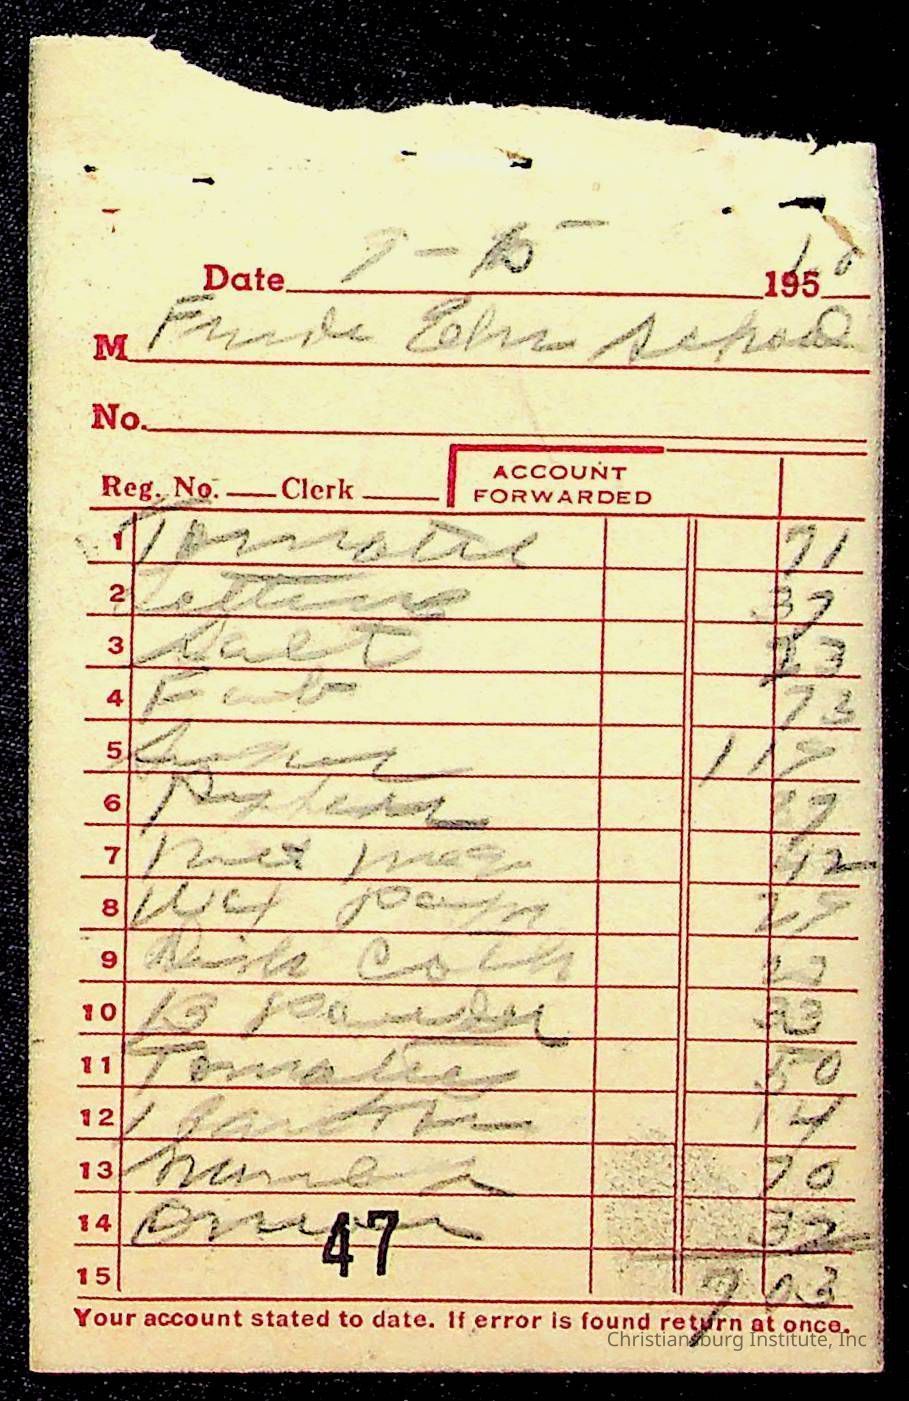 Date 7-15- 1960
M Elem School
No.
Reg. No. Clerk
ACCOUNT
FORWARDED
1 Tomatoes 71
2 Lettuce 37
3 Salt 23
4 Fab 73
5 1 19
6
7 42
8 Wax Paper 29
9 Dish Cloth
10 B Powder 33
11 Tomatoes 50
12 14
13 70
14 Onion 32
47
15 7 03
Your account stated to date. If error is found return at once.
Christiansburg Institute, Inc